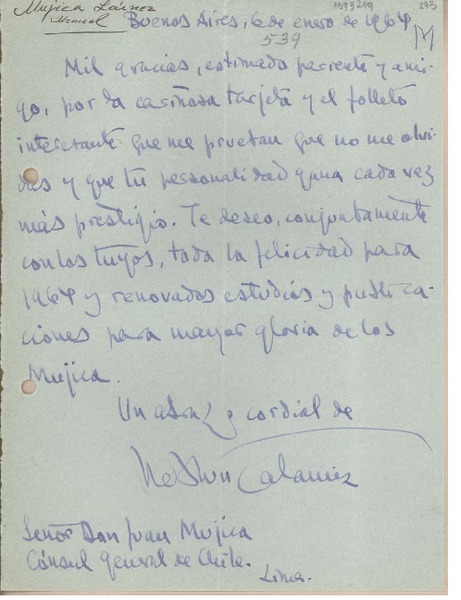 Mujica Láinez
Manuel
1093299 273
Buenos Aires, 6 de enero de 1964
539
M
Mil gracias, estimado pariente y ami-
go, por la cariñosa tarjeta y el folleto
interesante que me prueban que no me olvi-
das y que tu personalidad gana cada vez
más prestigio. Te deseo, conjuntamente
con los tuyos, toda la felicidad para
1964 y renovados estudios y publica-
ciones para mayor gloria de los
Mujica.
Un abrazo cordial de
Señor Don Juan Mujica
Cónsul general de Chile.
Lima.